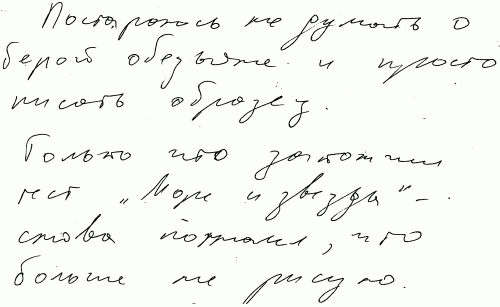 Постараюсь не думать о
белой обезьяне и просто
писать образец.
Только что закончил
тест „Море и звезды" –
снова понял, что
больше не рисую.